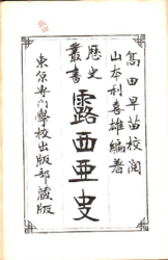 高田早苗校閲
山本利喜雄編著
歴史
叢書
露西亜史
東京専門學校出版部蔵版